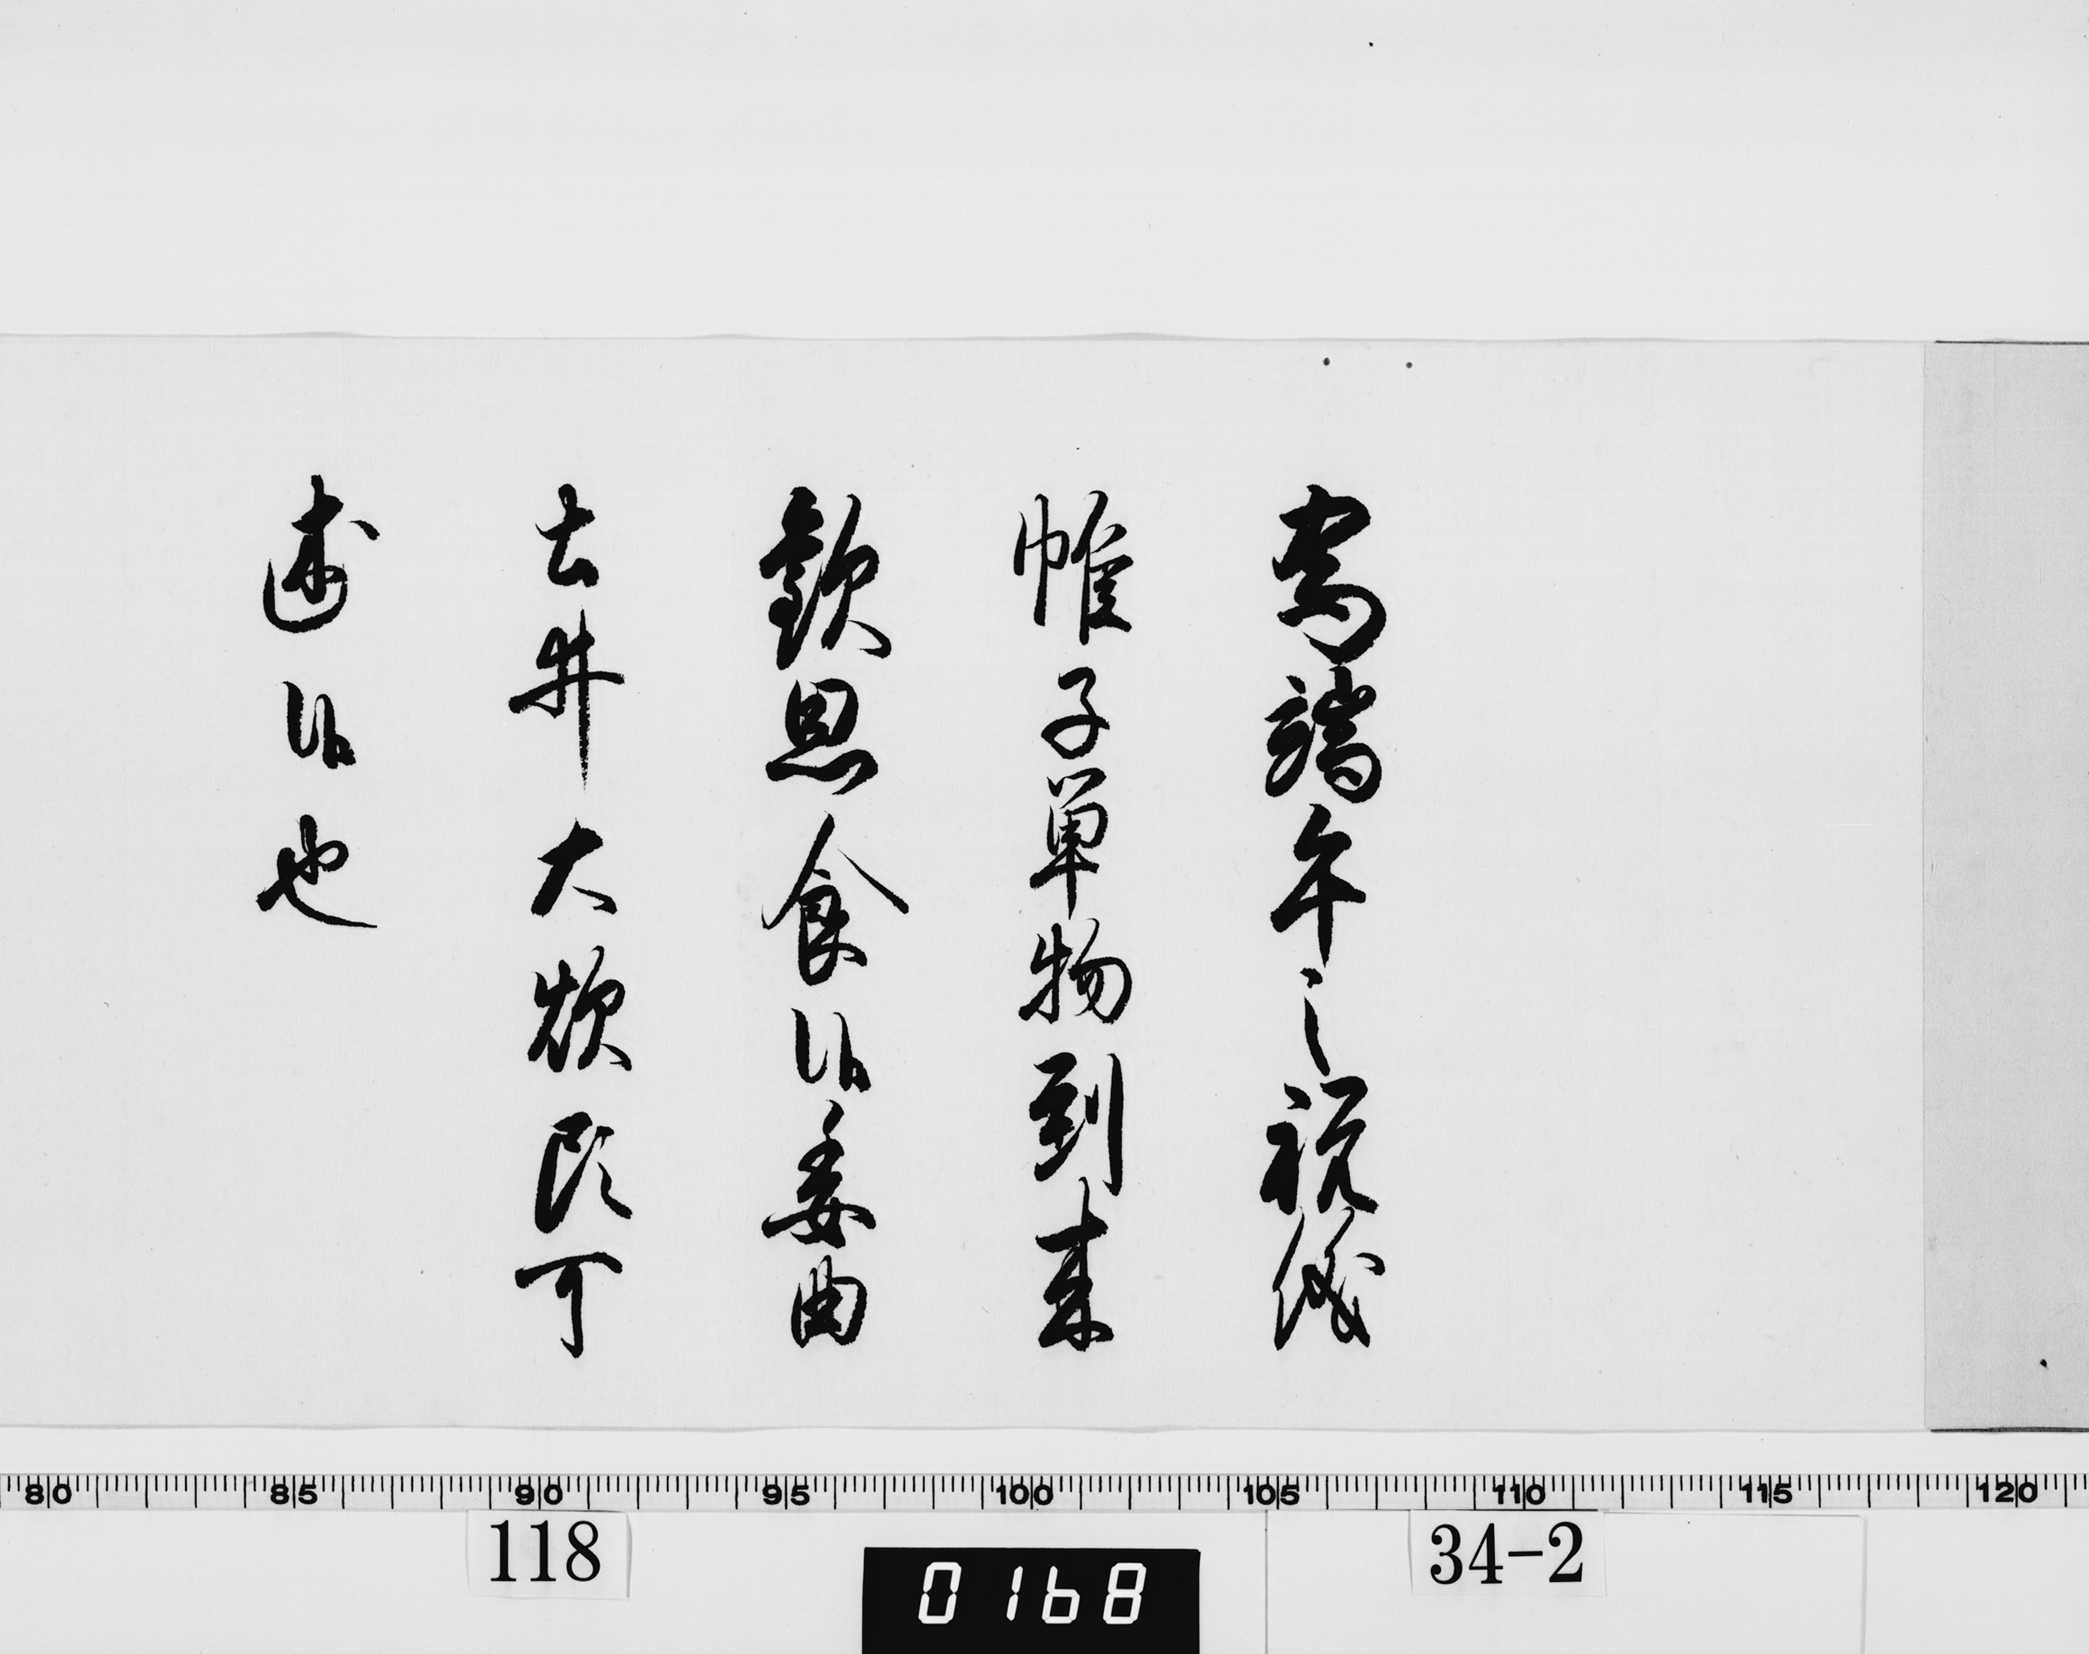 為端午之祝儀
帷子単物到来
歓思食候委曲
土井大炊頭可
述候也
80 85 90 95 100 105 110 115 120
118
0168
34-2